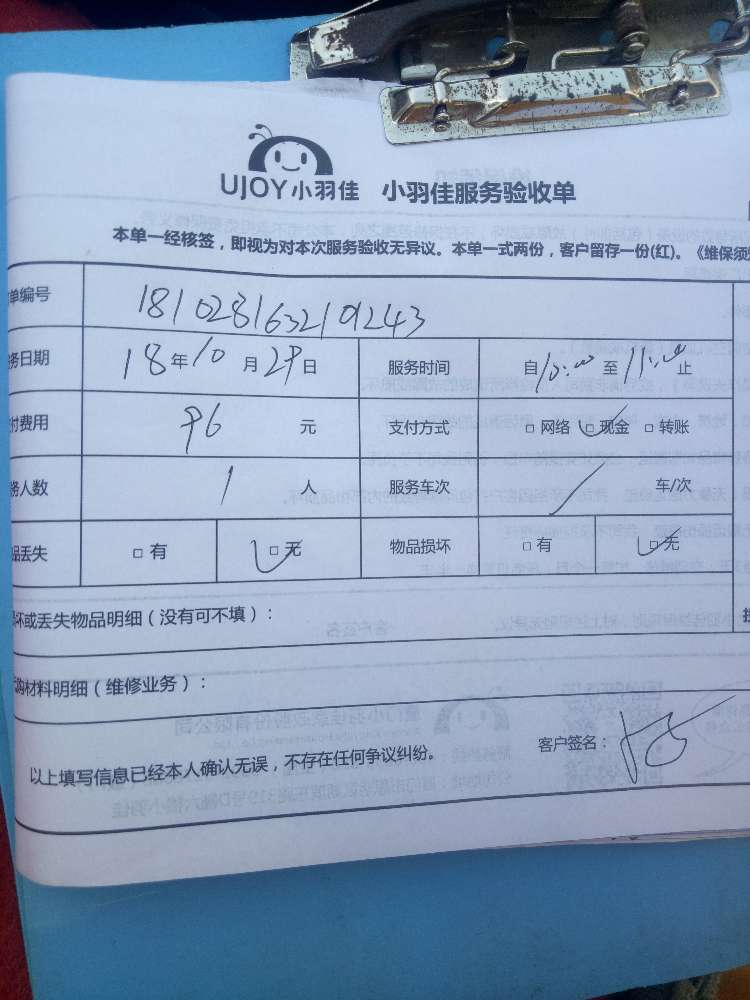 UJOY小羽佳 小羽佳服务验收单
本单一经核签，即视为对本次服务验收无异议。本单一式两份，客户留存一份(红)。《维保须
单编号 181028163219243
务日期 18年10月29日 服务时间 自10:00至11:00止
付费用 96 元 支付方式 □网络 ☑现金 □转账
务人数 1 人 服务车次 / 车/次
品丢失 □有 ☑无 物品损坏 □有 ☑无
坏或丢失物品明细（没有可不填）：
购材料明细（维修业务）：
以上填写信息已经本人确认无误，不存在任何争议纠纷。 客户签名：